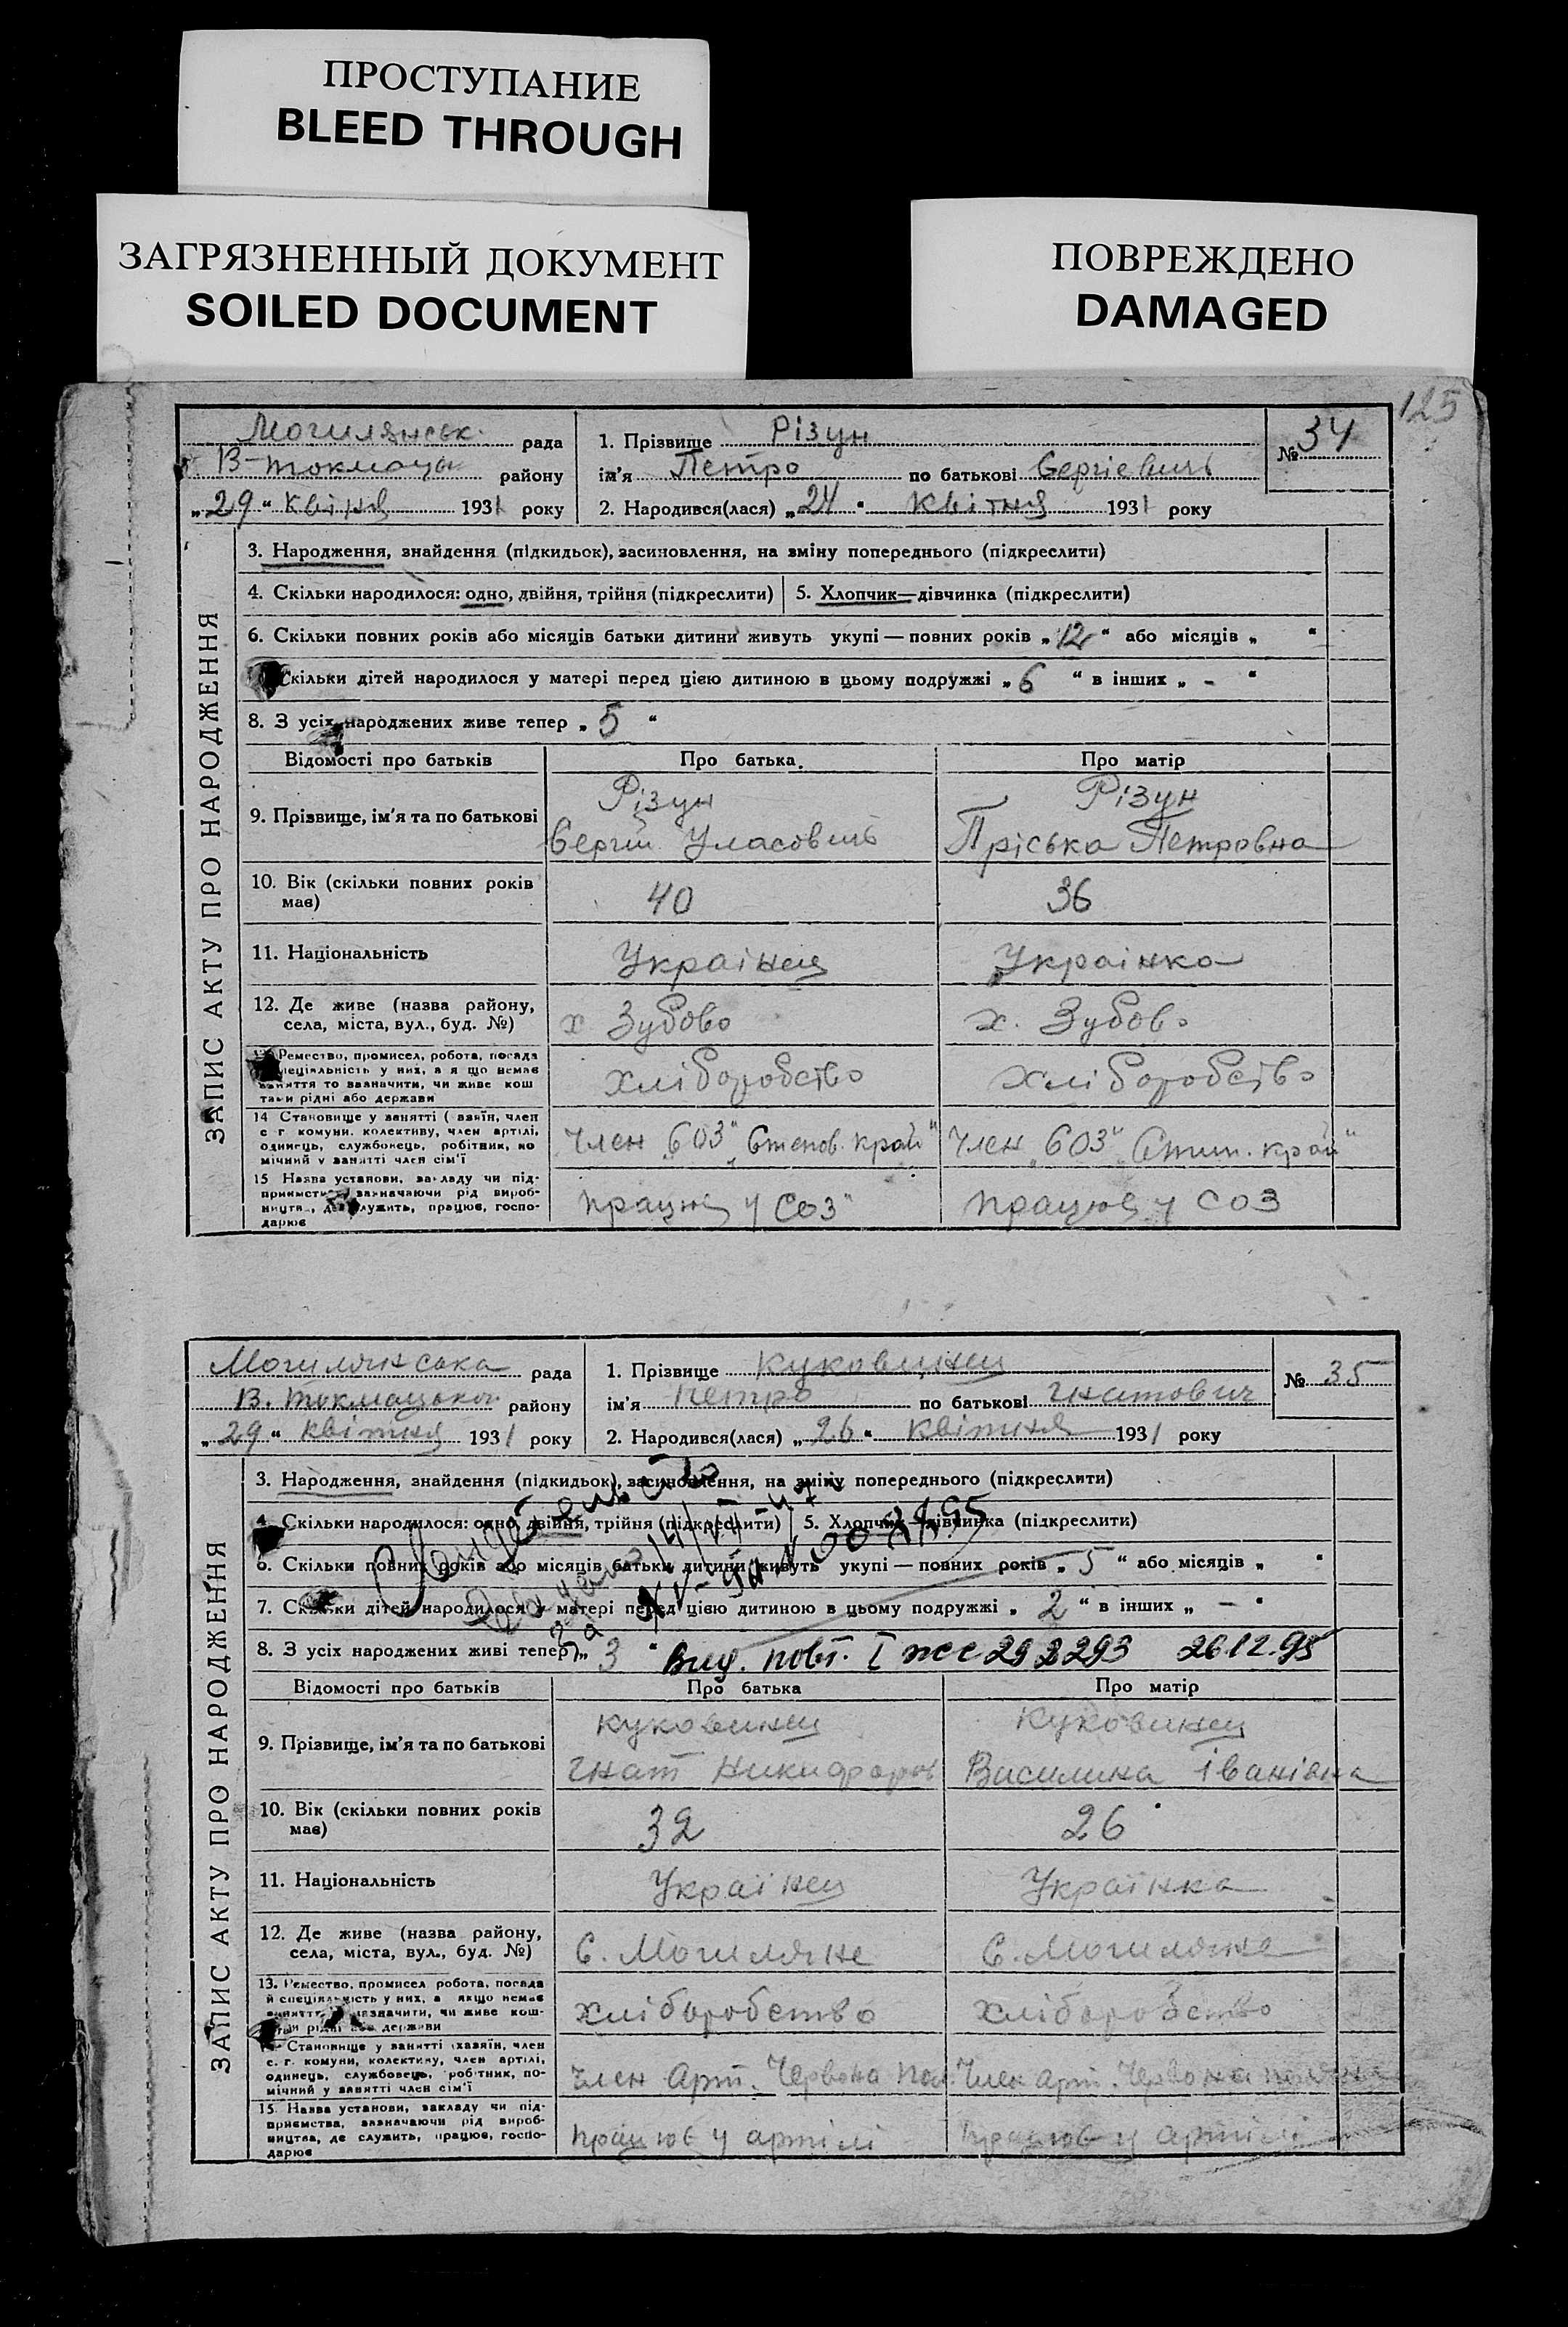 ПРОСТУПАНИЕ
BLEED THROUGH
ЗАГРЯЗНЕННЫЙ ДОКУМЕНТ
SOILED DOCUMENT
ПОВРЕЖДЕНО
DAMAGED
125
ЗАПИС АКТУ ПРО НАРОДЖЕННЯ
Могилянськ. рада
В-Токмацьк району
„29“ Квітня 1931 року
1. Прізвище Різун
ім'я Петро по батькові Сергієвичь
2. Народився(лася) „24“ Квітня 1931 року
№ 34
3. Народження, знайдення (підкидьок), засиновлення, на зміну попереднього (підкреслити)
4. Скільки народилося: одно, двійня, трійня (підкреслити) 5. Хлопчик—дівчинка (підкреслити)
6. Скільки повних років або місяців батьки дитини живуть укупі — повних років „12“ або місяців „ “
Скільки дітей народилося у матері перед цією дитиною в цьому подружжі „6“ в інших „-“
8. З усіх народжених живе тепер „5“
Відомості про батьків Про батька Про матір
9. Прізвище, ім'я та по батькові
Різун Різун
Сергій Уласовичь Пріська Петровна
10. Вік (скільки повних років має) 40 36
11. Національність Українец Українка
12. Де живе (назва району, села, міста, вул., буд. №) х Зубово х. Зубово
Ремество, промисел, робота, посада
спеціяльність у них, а якщо немає
заняття то зазначити, чи живе кош
тами рідні або держави
хліборобство хліборобство
14 Становище у занятті (хазяїн, член
с г комуни, колективу, член артілі,
одинець, службовець, робітник, по
мічний у занятті член сім'ї
Член „СОЗ“ „Степов. край“ Член „СОЗ“ Степ. край“
15 Назва установи, закладу чи під-
приємства, зазначаючи рід вироб-
ництва, де служить, працює, госпо-
дарює
працює у СОЗ“ працює у СОЗ
ЗАПИС АКТУ ПРО НАРОДЖЕННЯ
Могилянська рада
В. Токмацького району
„29“ Квітня 1931 року
1. Прізвище Куковинец
ім'я Петро по батькові Гнатович
2. Народився(лася) „26“ Квітня 1931 року
№ 35
3. Народження, знайдення (підкидьок), засиновлення, на зміну попереднього (підкреслити)
4. Скільки народилося: одно, двійня, трійня (підкреслити) 5. Хлопчик—дівчинка (підкреслити)
6. Скільки повних років або місяців батьки дитини живуть укупі — повних років „5“ або місяців „ “
7. Скільки дітей народилося у матері перед цією дитиною в цьому подружжі „2“ в інших „—“
8. З усіх народжених живі тепер „3“ Вид. повт. I 26.12.95
Відомості про батьків Про батька Про матір
9. Прізвище, ім'я та по батькові
Куковинец Куковинец
Гнат Никифоров Василина Іванівна
10. Вік (скільки повних років має) 32 26
11. Національність Українец Українка
12. Де живе (назва району, села, міста, вул., буд. №) С. Могиляне С. Могиляне
13. Ремество, промисел робота, посада
й спеціяльність у них, а якщо немає
заняття зазначити, чи живе кош-
тами рідні або держави
хліборобство хліборобство
Становище у занятті хазяїн, член
с. г. комуни, колективу, член артілі,
одинець, службовець, робітник, по-
мічний у занятті член сім'ї
Член Арт. Червона Пол. Член арт. Червона
15 Назва установи, закладу чи під-
приємства, зазначаючи рід вироб-
ництва, де служить, працює, госпо-
дарює
працює у артілі працює у артілі